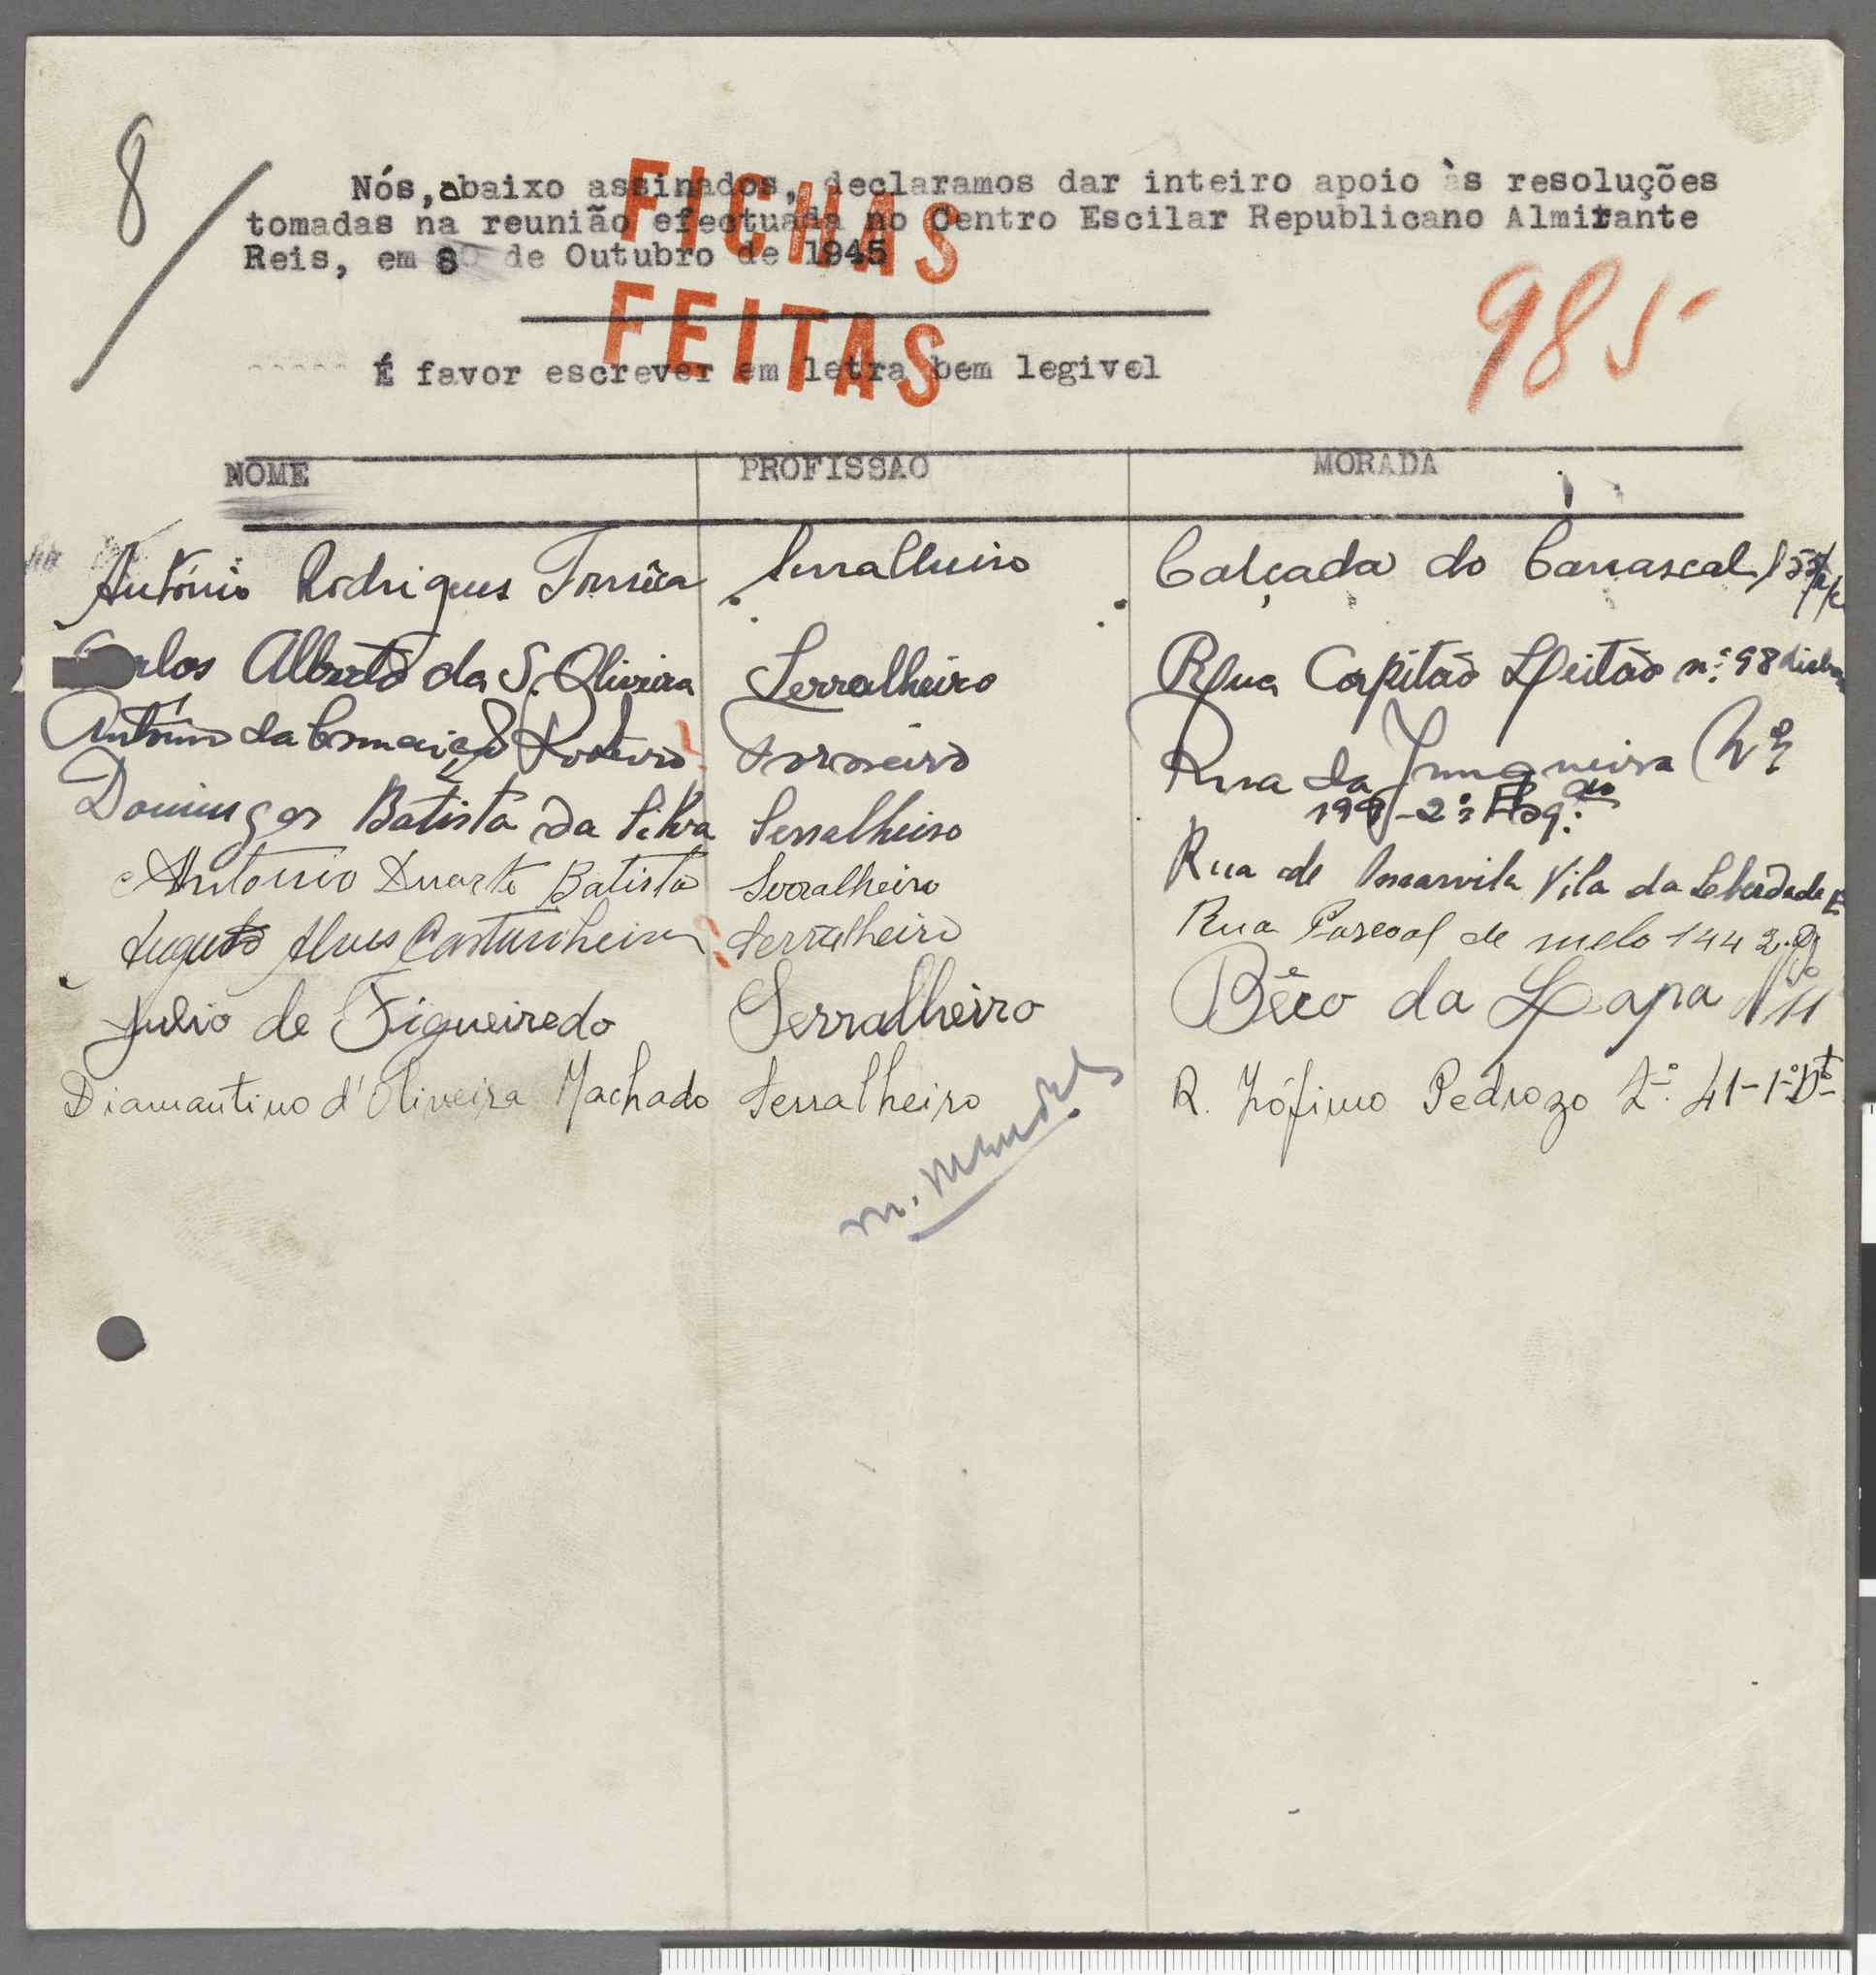 8
Nós, abaixo assinados, declaramos dar inteiro apoio às resoluções
tomadas na reunião efectuada no Centro Escilar Republicano Almirante
Reis, em 8 de Outubro de 1945
FICHAS
FEITAS
985
É favor escrever em letra bem legivel
NOME PROFISSAO MORADA
António Rodrigues Fonsêca Serralheiro Calçada do Carrascal
Carlos Alberto da S. Oliveira Serralheiro Rua Capitão Leitão n.º 98
António da Conceição Torneiro Rua da Junqueira Nº
199-2º Esq.
Domingos Batista da Silva Serralheiro Rua de Vila da
António Duarte Batista Serralheiro Rua Pascoal de melo 144
Augusto Alves Castanheira Serralheiro
Julio de Figueiredo Serralheiro Bêco da Lapa Nº 11
Diamantino d'Oliveira Machado Serralheiro R. Zófimo Pedrozo 41-1º Dtº
M. Mendes